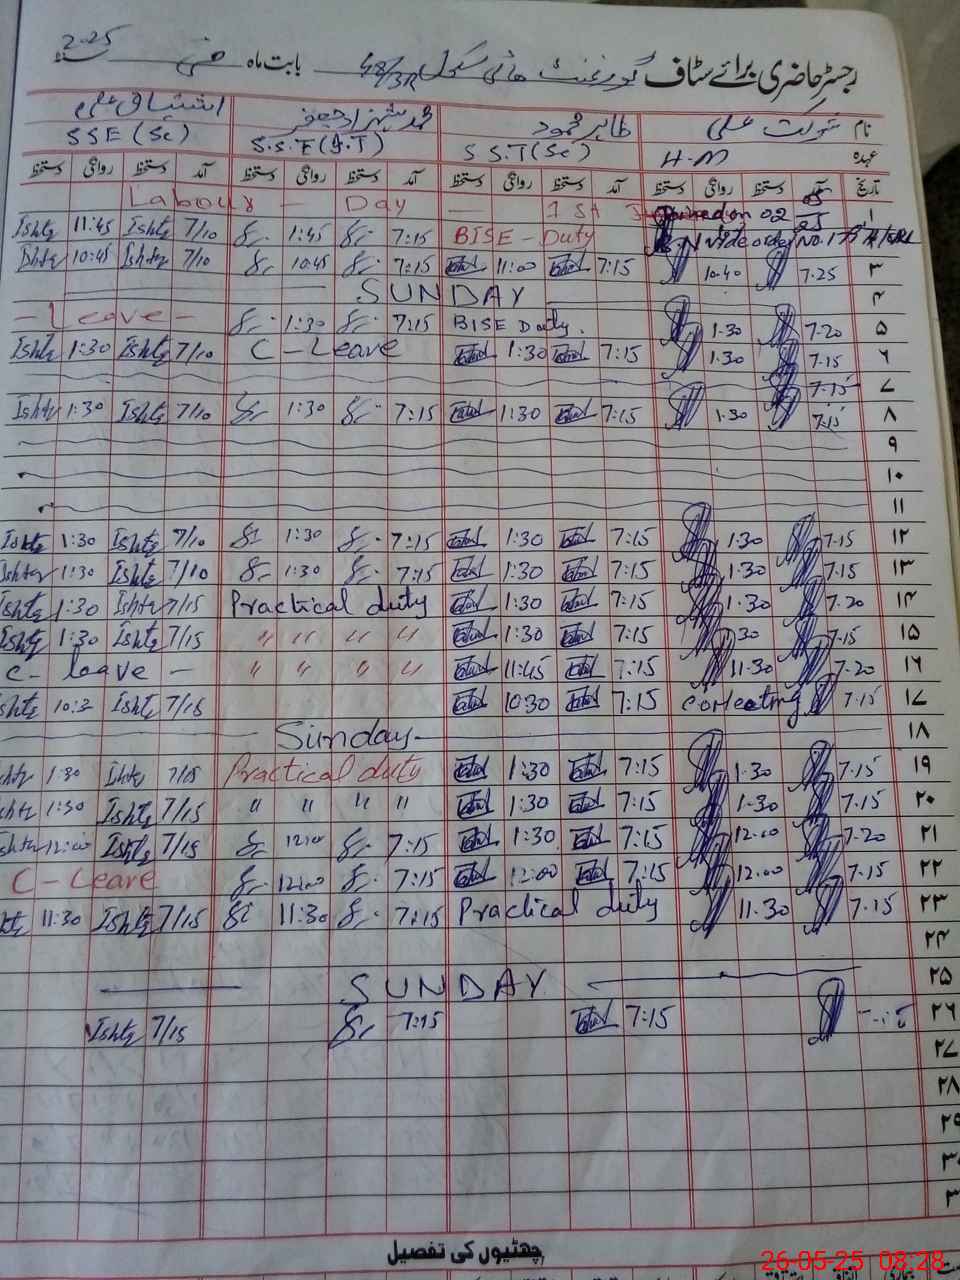 رجسٹر حاضری برائے سٹاف گورنمنٹ ہائی سکول 48/3R بابت ماہ مئی 2025
نام شوکت علی طاہر محمود محمد شہزاد جعفر اشتیاق علی
عہدہ H.M S S.T(Sc) S.S.E(A.T) SSE (Sc)
تاریخ آمد دستخط روانگی دستخط آمد دستخط روانگی دستخط آمد دستخط روانگی دستخط آمد دستخط روانگی دستخط
Labour - Day - 1st ۱
Ishtq 11:45 Ishtq 7/10 1:45 7:15 BISE - Duty
Ishtq 10:45 Ishtq 7/10 10:45 7:15 11:00 7:15 10.40 7.25 ۳
SUNDAY ۴
- Leave - 1:30 7:15 BISE Duty. 1.30 7.20 ۵
Ishtq 1:30 Ishtq 7/10 C - Leave 1:30 7:15 1.30 7.15 ۶
7.15 ۷
Ishtq 1:30 Ishtq 7/10 1:30 7:15 1:30 7:15 1.30 7.15 ۸
۹
۱۰
۱۱
Ishtq 1:30 Ishtq 7/10 1:30 7:15 1:30 7:15 1.30 7.15 ۱۲
Ishtq 1:30 Ishtq 7/10 1:30 7:15 1:30 7:15 1.30 7.15 ۱۳
Ishtq 1:30 Ishtq 7/15 Practical duty 1:30 7:15 1.30 7.20 ۱۴
Ishtq 1:30 Ishtq 7/15 " " " " 1:30 7:15 30 7.15 ۱۵
C - leave - " " " " 11:45 7:15 11.30 7.20 ۱۶
Ishtq 10:3 Ishtq 7/15 10:30 7:15 7.15 ۱۷
Sunday ۱۸
1:30 Ishtq 7/15 Practical duty 1:30 7:15 1.30 7.15 ۱۹
1:30 Ishtq 7/15 " " " " 1:30 7:15 1.30 7.15 ۲۰
12:00 Ishtq 7/15 12:00 7:15 1:30 7:15 12.00 7.20 ۲۱
C - Leave 12:00 7:15 12:00 7:15 12.00 7.15 ۲۲
11:30 Ishtq 7/15 11:30 7:15 Practical duty 11.30 7.15 ۲۳
۲۴
SUNDAY ۲۵
Ishtq 7/15 7:15 7:15 ۲۶
۲۷
۲۸
۲۹
۳۰
۳
چھٹیوں کی تفصیل
26-05-25 08:28